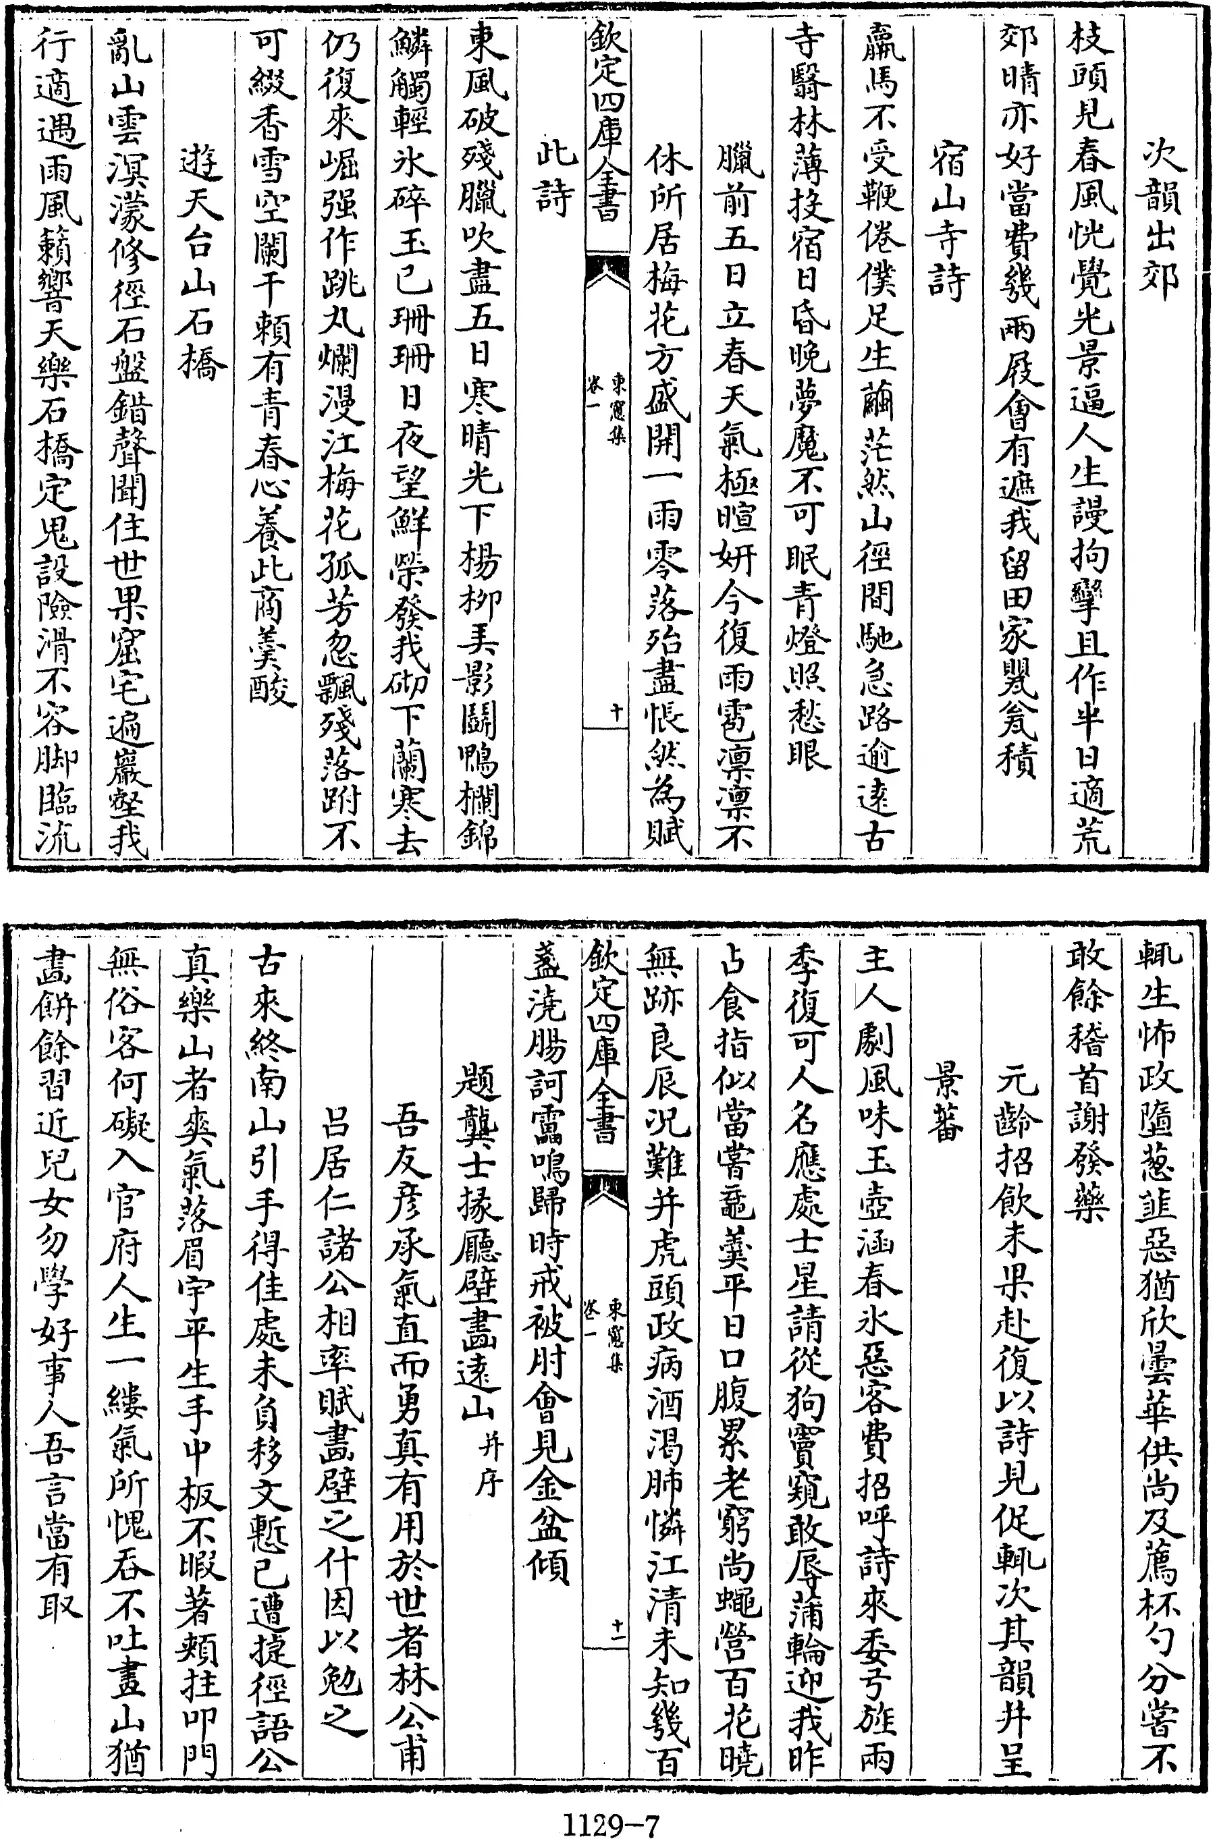 次韻出郊
枝頭見春風恍覺光景逼人生謾拘攣且作半日適荒
郊晴亦好當費幾兩屐會有遮我留田家甖瓮積
宿山寺詩
羸馬不受鞭倦僕足生繭茫然山徑間馳急路逾遠古
寺翳林薄投宿日昏晚夢魔不可眠青燈照愁眼
臘前五日立春天氣極暄妍今復雨雹凛凛不
休所居梅花方盛開一雨零落殆盡悵然為賦
欽定四庫全書
東窻集
卷一
十
此詩
東風破殘臘吹盡五日寒晴光下楊栁弄影鬭鴨欄錦
鱗觸輕氷碎玉已珊珊日夜望鮮榮發我砌下蘭寒去
仍復來崛强作跳丸爛漫江梅花孤芳忽飄殘落跗不
可綴香雪空闌干頼有青春心養此商羹酸
遊天台山石橋
亂山雲溟濛修徑石盤錯聲聞住世果窟宅遍巖壑我
行適遇雨風籟響天樂石橋定鬼設險滑不容脚臨流
輒生怖政墮葱韭惡猶欣曇華供尚及薦杯勺分嘗不
敢餘稽首謝發藥
元齡招飲未果赴復以詩見促輒次其韻并呈
景蕃
主人劇風味玉壺涵春氷惡客費招呼詩來委弓旌兩
季復可人名應處士星請從狗竇窺敢辱蒲輪迎我昨
占食指似當嘗黿羹平日口腹累老窮尚蠅營百花曉
無跡良辰况難并虎頭政病酒渇肺憐江清未知幾百
欽定四庫全書
東窻集
卷一
十一
盞澆腸訶靁鳴歸時戒被肘會見金盆傾
題龔士掾廳壁畫遠山并序
吾友彦承氣直而勇真有用於世者林公甫
吕居仁諸公相率賦畫壁之什因以勉之
古來終南山引手得佳處未負移文慙已遭捷徑語公
真樂山者爽氣落眉宇平生手中板不暇著頰拄叩門
無俗客何礙入官府人生一縷氣所愧吞不吐畫山猶
畫餅餘習近兒女勿學好事人吾言當有取
1129-7